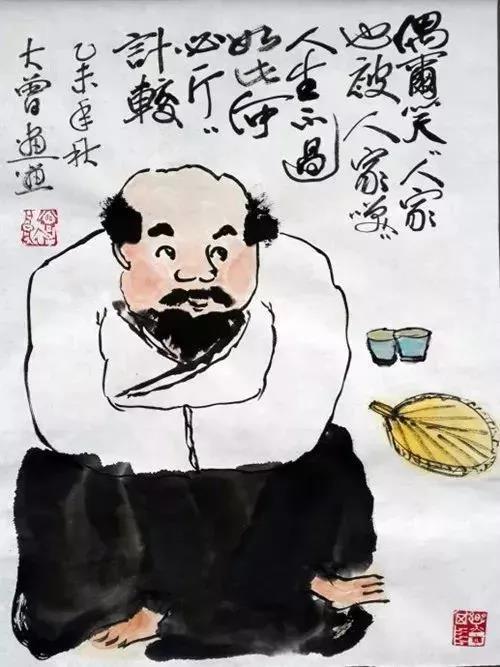 偶爾笑〃人家
也被人家咲〃
人生不過
如此何
必斤〃
計較
乙未年秋
大曾畫